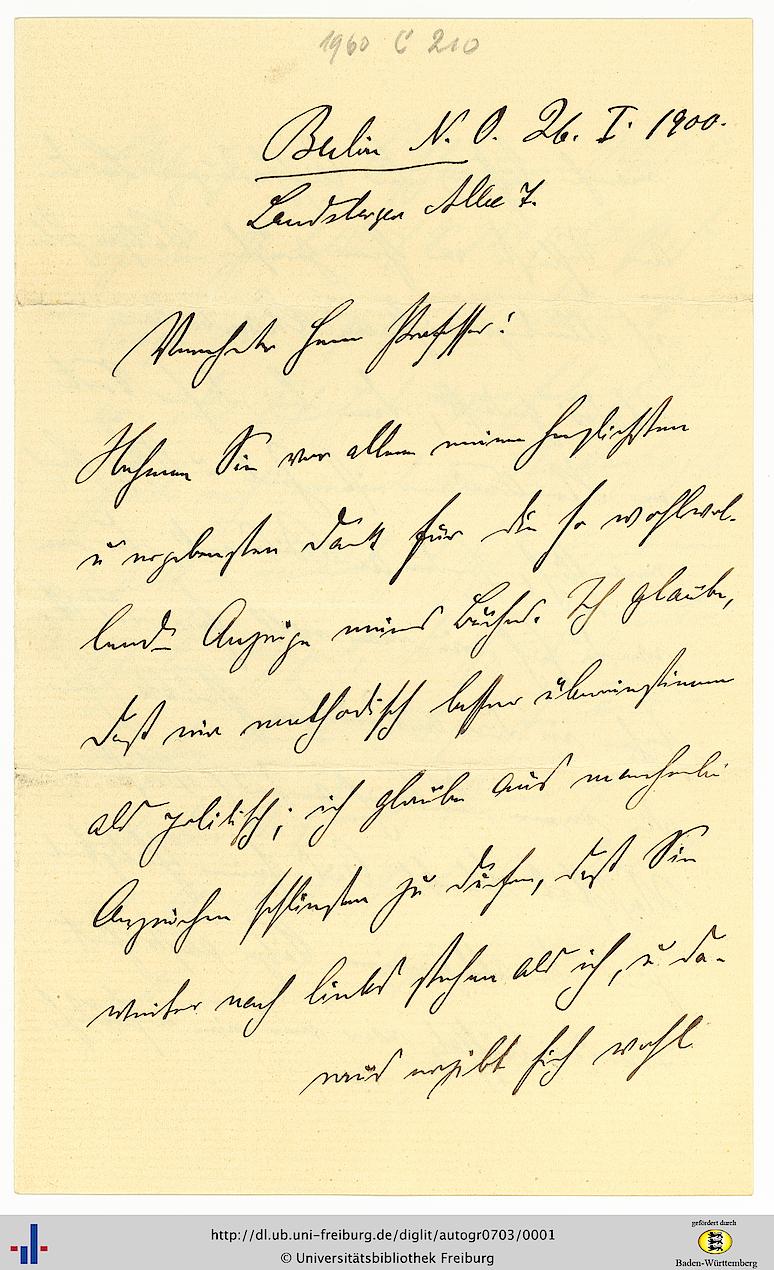 1960 C 210
Berlin N. O. 26. I. 1900.
Landsberger Allee 7.
Verehrter Herr Professor!
Nehmen Sie vor allem meinen herzlichsten
u ergebensten Dank für die so wohlwol-
lende Anzeige meines Buches. Ich glaube,
daß wir methodisch besser übereinstimmen
als politisch; ich glaube aus mancherlei
Anzeichen schließen zu dürfen, daß Sie
weiter nach links stehen als ich, u da-
raus ergibt sich wohl
http://dl.ub.uni-freiburg.de/diglit/autogr0703/0001
© Universitätsbibliothek Freiburg
gefördert durch
Baden-Württemberg